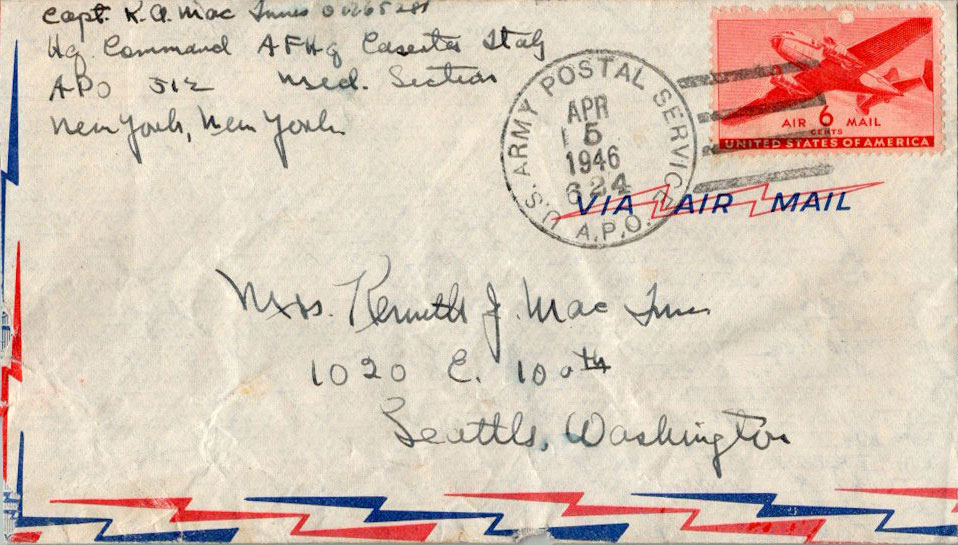 Capt. K. A. Mac Innes
Hq Command AFHq Caserta Italy
APO 512 Med. Section
New York, New York
U.S. ARMY POSTAL SERVICE
APR
5
1946
624
A.P.O.
AIR 6 MAIL
CENTS
UNITED STATES OF AMERICA
VIA AIR MAIL
Mrs. Kenneth J. Mac Innes
1020 E. 100th
Seattle, Washington